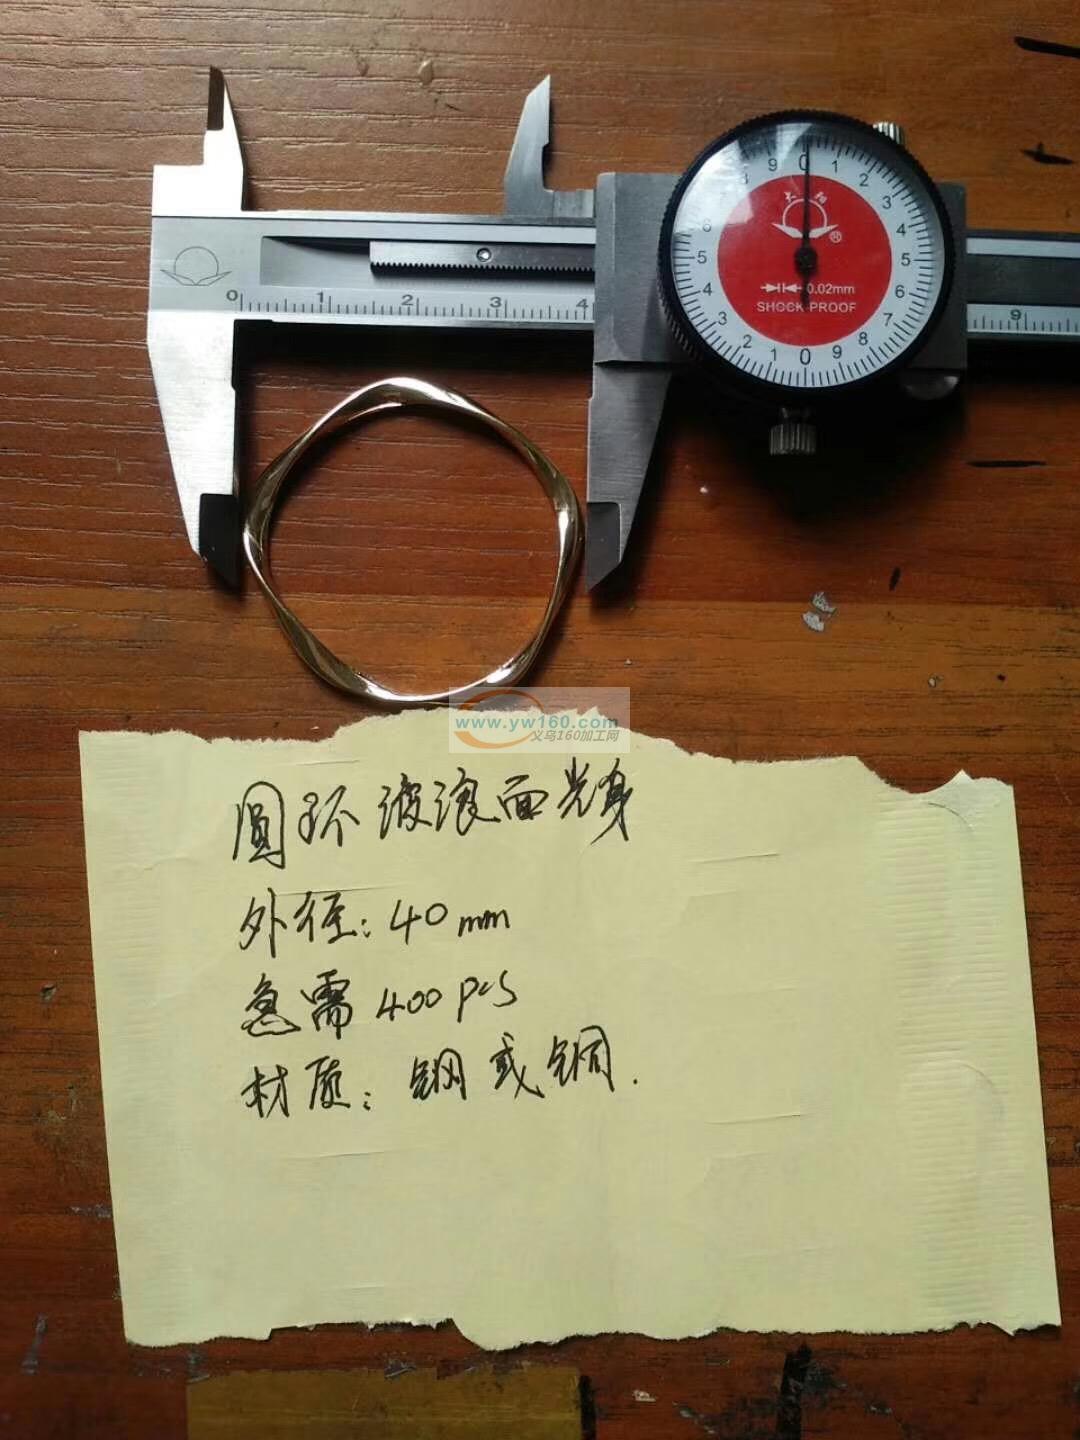 0 1 2 3 4
9
9 0 1 2 3 4 5 6 7 8 9 0 1 2 3 4 5 6
®
0.02mm
SHOCK PROOF
www.yw160.com
义乌160加工网
圆环波浪面光身
外径:40mm
急需400pcs
材质:钢或铜.